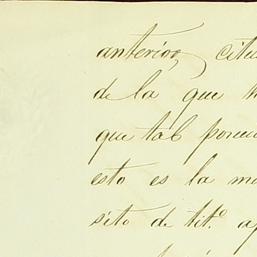 anterior, citu
de la que
que tal
esto es la
sito de tit.º